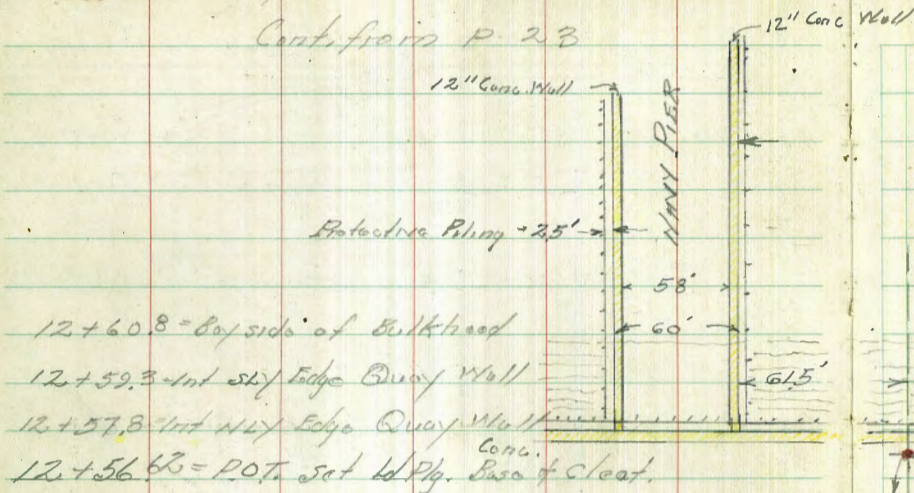 Cont. from P. 23
12" Conc. Wall
12" Conc. Wall
NAVY PIER
Protective Piling - 2.5'
58'
60'
61.5'
12+60.8 = Bay side of Bulkhead
12+59.3 = Int SLY Edge Quay Wall
12+57.8 = Int NLY Edge Quay Wall
12+56.62 = P.O.T. Set Ld Plg. Conc. Base of Cleat.